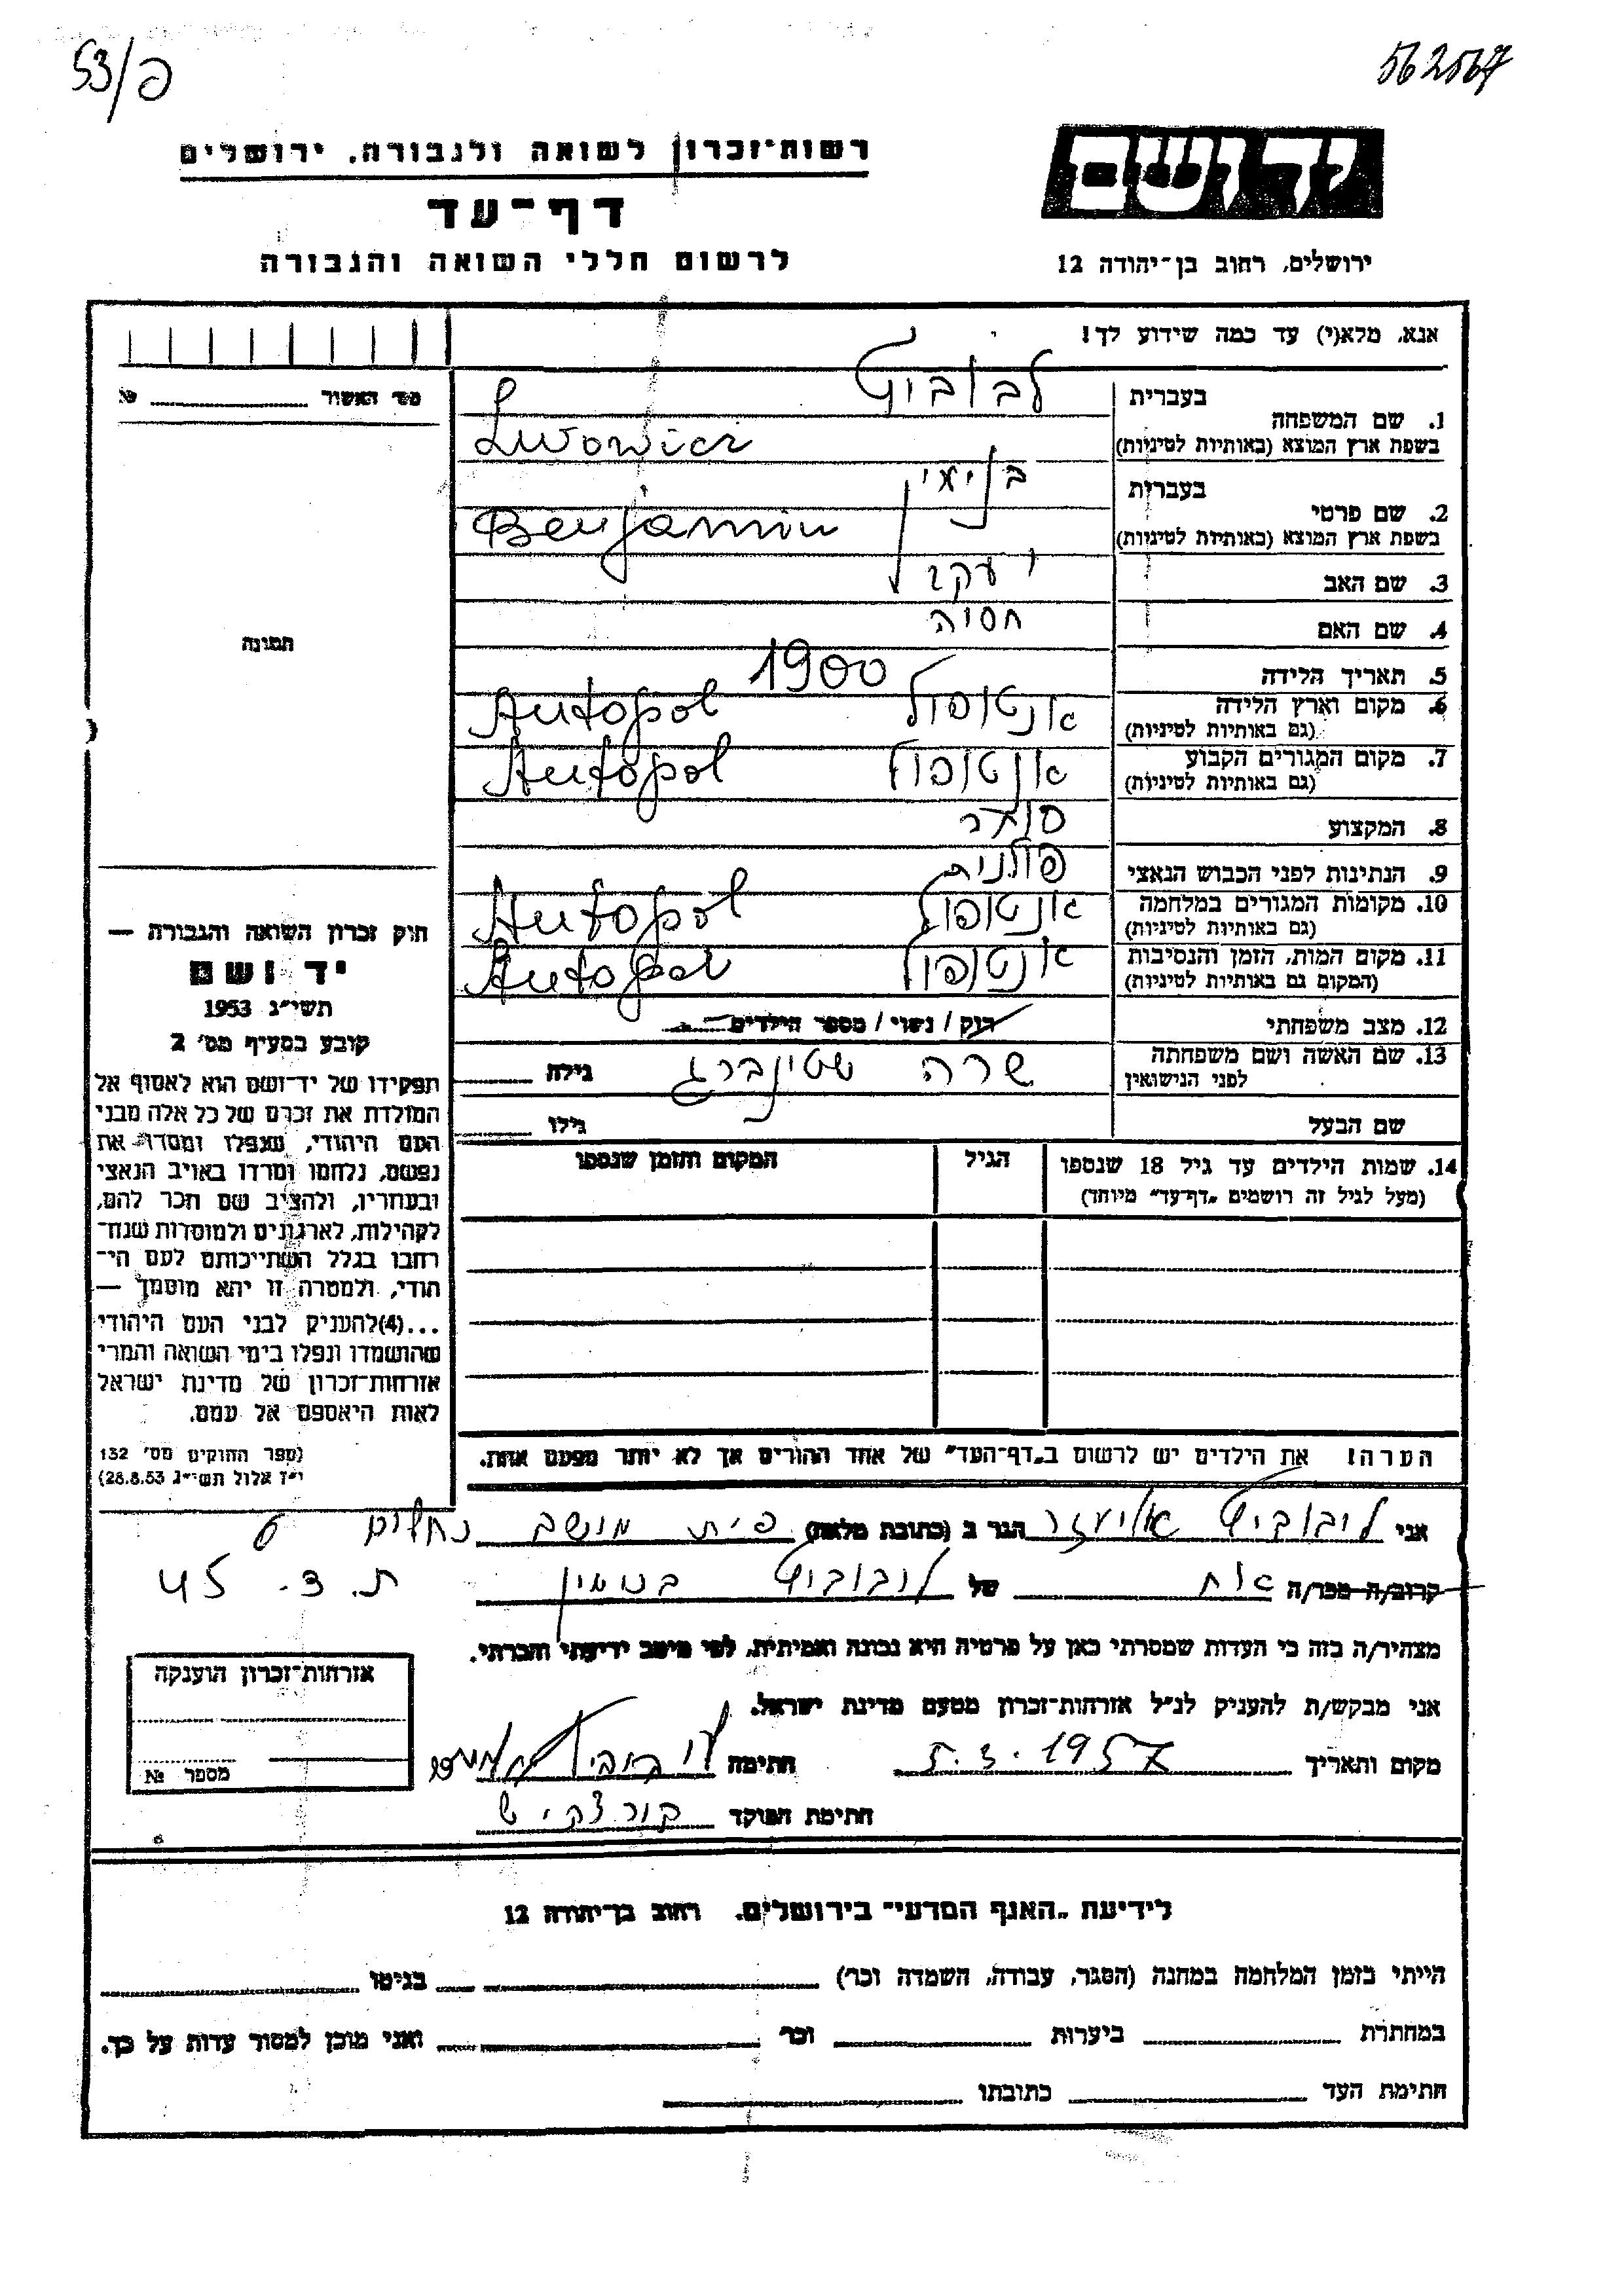 53/פ
562567
רשות-זכרון לשואה ולגבורה, ירושלים
דף-עד
לרשום חללי השואה והגבורה
יד ושם
ירושלים, רחוב בן-יהודה 12
אנא, מלא(י) עד כמה שידוע לך!
מס׳ האשור № ........
1. שם המשפחה
בעברית
לבוביץ
בשפת ארץ המוצא (באותיות לטיניות)
Lwowicz
2. שם פרטי
בעברית
בנימין
בשפת ארץ המוצא (באותיות לטיניות)
Benjamin
3. שם האב יעקב
4. שם האם חסיה
תמונה
5. תאריך הלידה 1900
6. מקום וארץ הלידה אנטופול Antopol
(גם באותיות לטיניות)
7. מקום המגורים הקבוע אנטופול Antopol
(גם באותיות לטיניות)
8. המקצוע סוחר
9. הנתינות לפני הכבוש הנאצי פולנית
10. מקומות המגורים במלחמה אנטופול Antopol
(גם באותיות לטיניות)
11. מקום המות, הזמן והנסיבות אנטופול Antopol
(המקום גם באותיות לטיניות)
12. מצב משפחתי רוק / נשוי / מספר הילדים
13. שם האשה ושם משפחתה שרה שטינברג גילה
לפני הנישואין
שם הבעל גילו
14. שמות הילדים עד גיל 18 שנספו הגיל המקום והזמן שנספו
(מעל לגיל זה רושמים „דף-עד״ מיוחד)
הערה! את הילדים יש לרשום ב„דף-העד״ של אחד ההורים אך לא יותר מפעם אחת.
חוק זכרון השואה והגבורה —
יד ושם
תשי״ג 1953
קובע בסעיף מס׳ 2
תפקידו של יד-ושם הוא לאסוף אל
המולדת את זכרם של כל אלה מבני
העם היהודי, שנפלו ומסרו את
נפשם, נלחמו ומרדו באויב הנאצי
ובעוזריו, ולהציב שם וזכר להם,
לקהילות, לארגונים ולמוסדות שנח-
רבו בגלל השתייכותם לעם הי-
הודי, ולמטרה זו יהא מוסמך —
...(4)להעניק לבני העם היהודי
שהושמדו ונפלו בימי השואה והמרי
אזרחות-זכרון של מדינת ישראל
לאות היאספם אל עמם.
(ספר החוקים מס׳ 132
י״ז אלול תשי״ג 28.8.53)
אני ליבוביץ אליעזר הגר ב (כתובת מלאה) פ״ת מושב נחלים
קרוב/ה מכר/ה אח של ליבוביץ בנימין ת. ד. 45
מצהיר/ה בזה כי העדות שמסרתי כאן על פרטיה היא נכונה ואמיתית, לפי מיטב ידיעתי והכרתי.
אני מבקש/ת להעניק לנ״ל אזרחות-זכרון מטעם מדינת ישראל.
מקום ותאריך 5.3.1957 חתימה ליבוביץ
חתימת הפוקד
אזרחות-זכרון הוענקה
מספר №
לידיעת „האגף המדעי״ בירושלים, רחוב בן-יהודה 12
הייתי בזמן המלחמה במחנה (הסגר, עבודה, השמדה וכו׳) בגיטו
במחתרת ביערות וכו׳ ואני מוכן למסור עדות על כך.
חתימת העד כתובתו